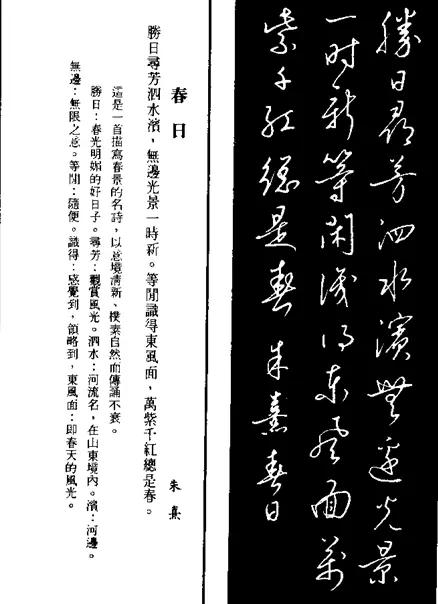 勝日尋芳泗水濱無邊光景
一时新等闲識得东風面萬
紫千红總是春 朱熹春日
春日
朱熹
勝日尋芳泗水濱，無邊光景一時新。等閒識得東風面，萬紫千紅總是春。
這是一首描寫春景的名詩，以意境清新、樸素自然而傳誦不衰。
勝日：春光明媚的好日子。尋芳：觀賞風光。泗水：河流名，在山東境內。濱：河邊。
無邊：無限之意。等閒：隨便。識得：感覺到，領略到，東風面：即春天的風光。